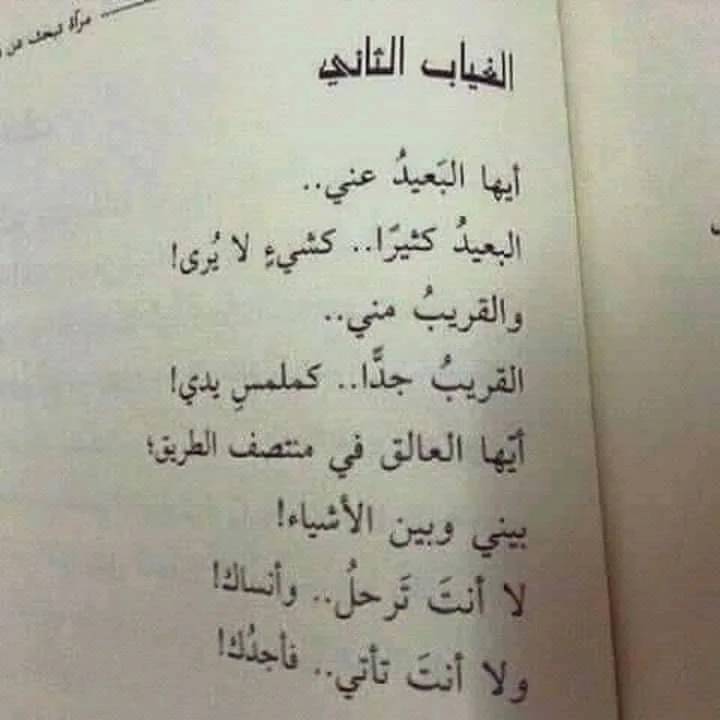 مرأة تبحث عن
الغياب الثاني
أيها البَعيدُ عني..
البعيدُ كثيرًا.. كشيءٍ لا يُرى!
والقريبُ مني..
القريبُ جدًّا.. كملمسِ يدي!
أيّها العالق في منتصف الطريق؛
بيني وبين الأشياء!
لا أنتَ تَرحلُ.. وأنساك!
ولا أنتَ تأتي.. فأجدُك!